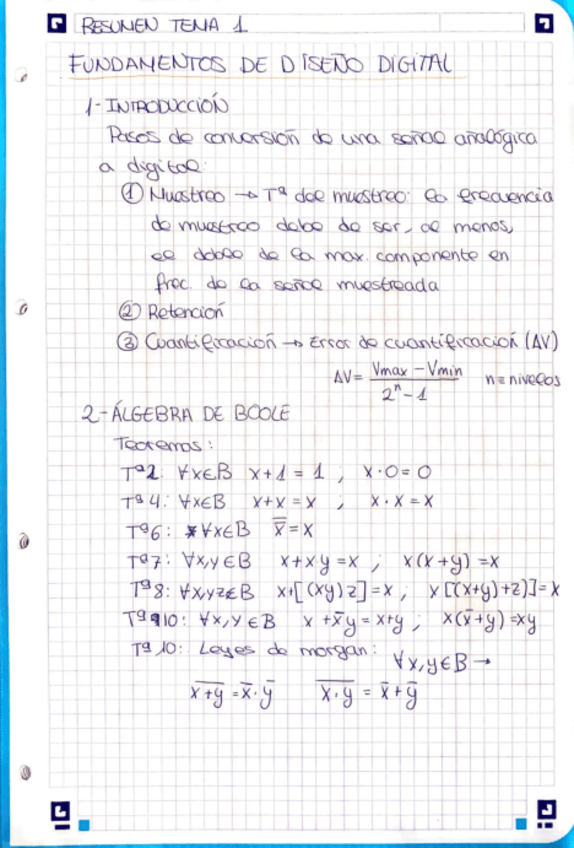 RESUMEN TEMA 1
FUNDAMENTOS DE DISEÑO DIGITAL
1-INTRODUCCIÓN
Pasos de conversión de una señal analógica
a digital:
① Muestreo → Tª del muestreo: la frecuencia
de muestreo debe de ser, al menos,
el doble de la max. componente en
frec. de la señal muestreada
② Retención
③ Cuantificación → Error de cuantificación (ΔV)
ΔV = (Vmax - Vmin) / (2ⁿ - 1) n ≡ niveles
2-ÁLGEBRA DE BOOLE
Teoremas:
Tª2: ∀x∈B x+1 = 1 ; x·0 = 0
Tª4: ∀x∈B x+x = x , x·x = x
Tª6: ∀x∈B x̿ = x
Tª7: ∀x,y∈B x+xy = x ; x(x+y) = x
Tª8: ∀x,y,z∈B x+[(xy)z] = x ; x[(x+y)+z)] = x
Tª10: ∀x,y∈B x+x̄y = x+y ; x(x̄+y) = xy
Tª10: Leyes de morgan: ∀x,y∈B →
\overline{x+y} = x̄·ȳ \overline{x·y} = x̄+ȳ